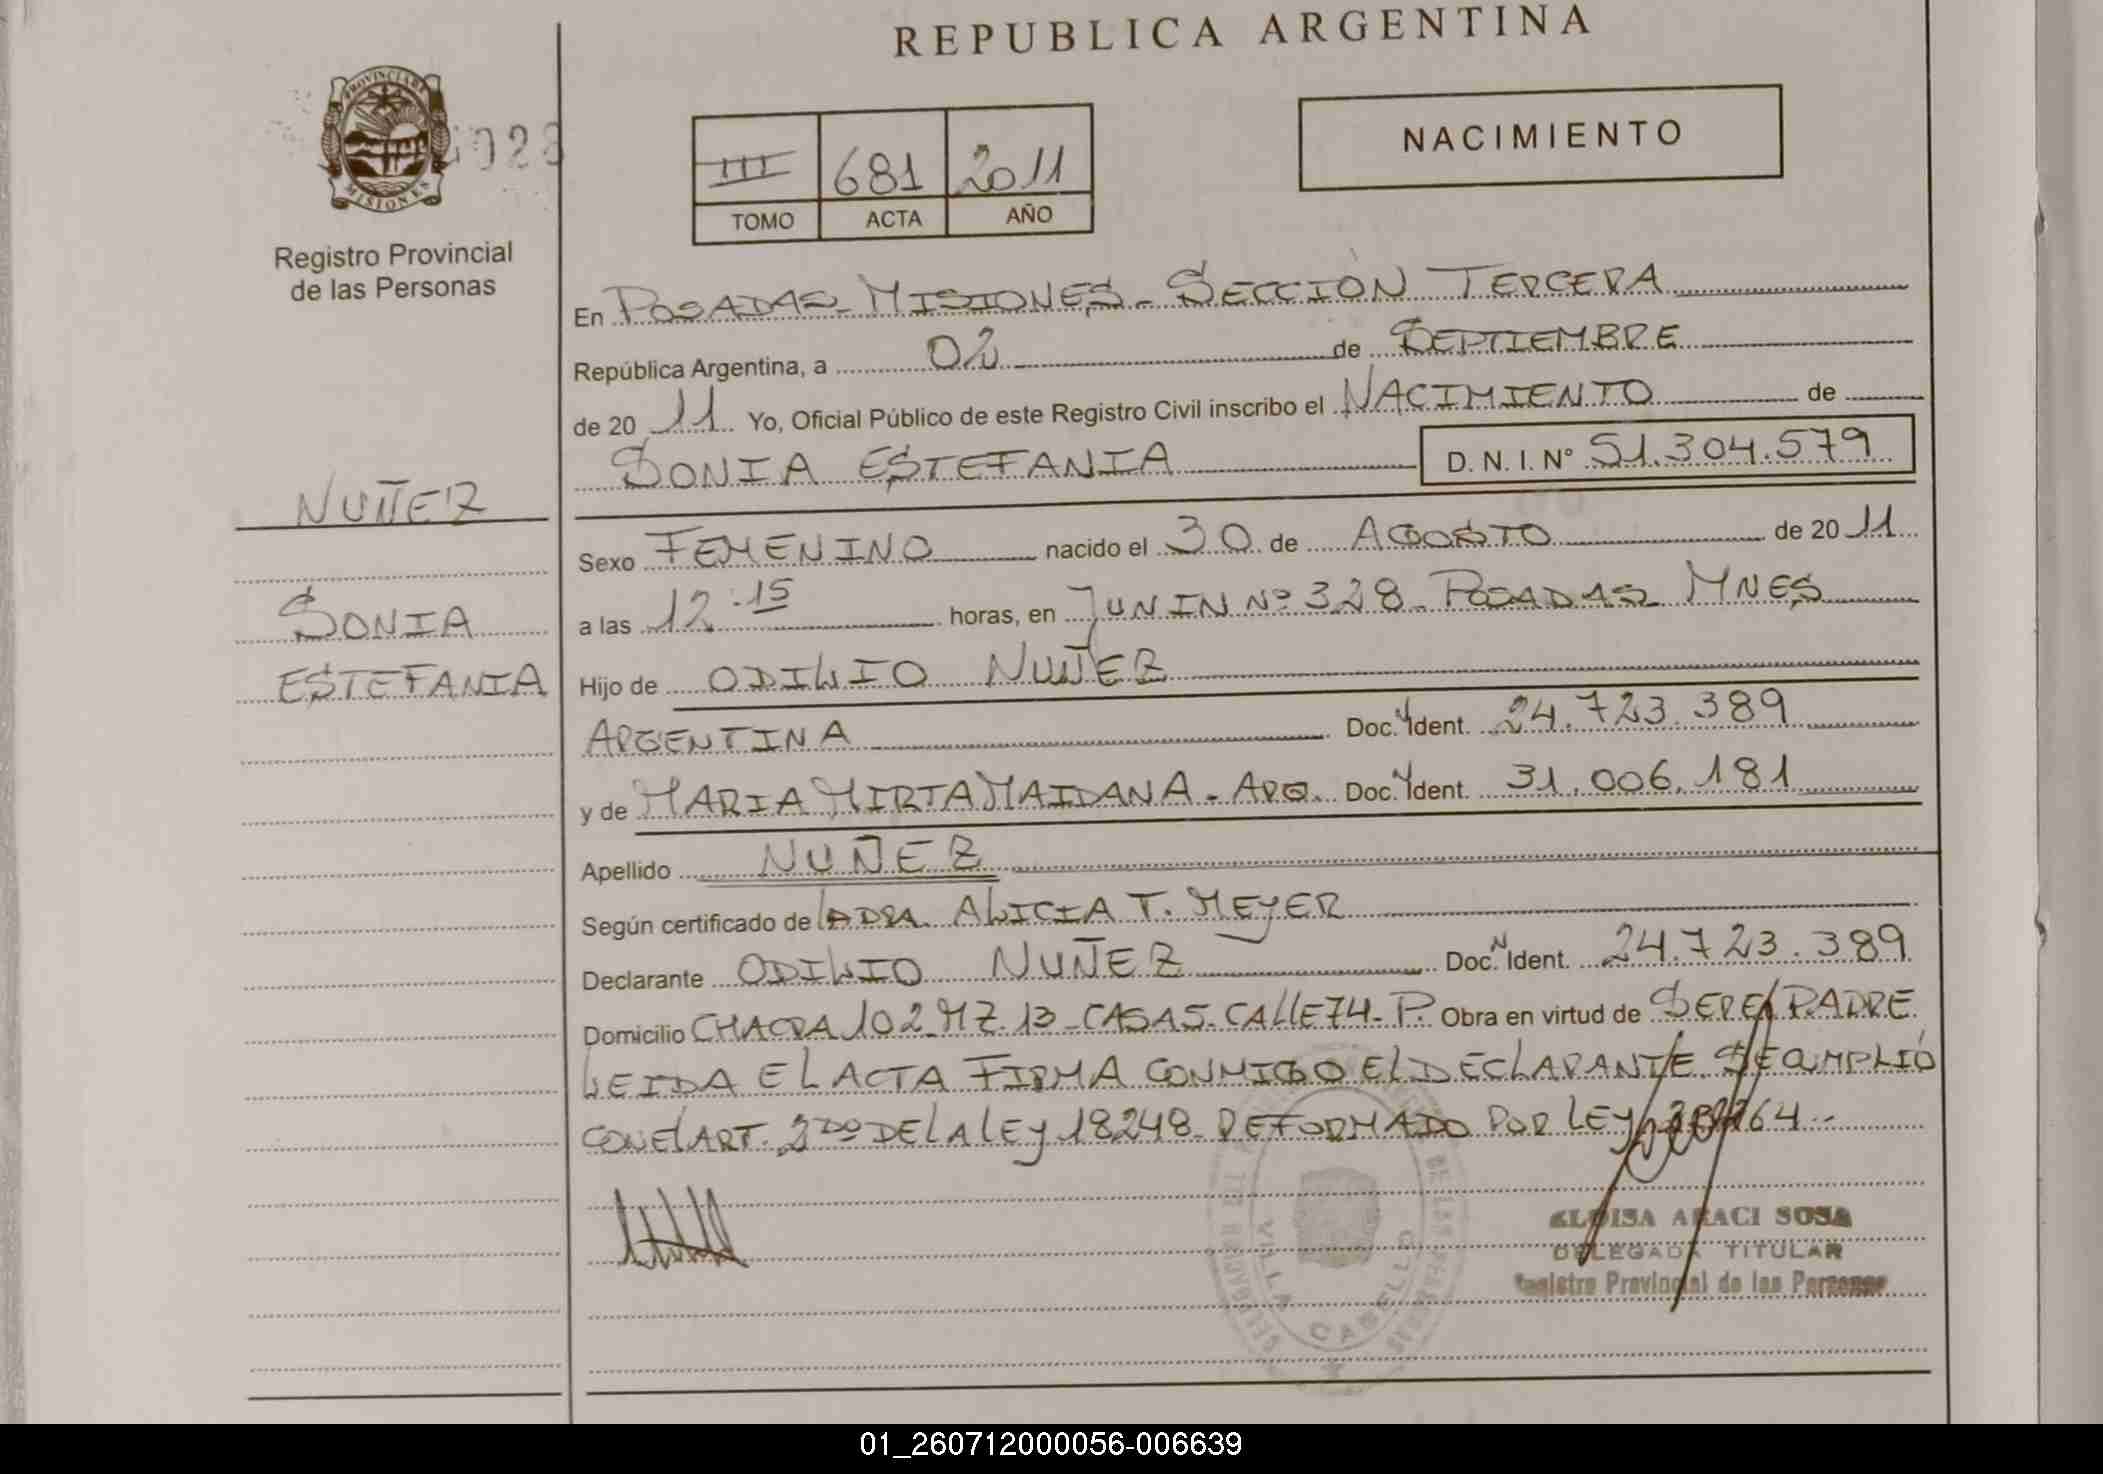 REPUBLICA ARGENTINA
PROVINCIA DE
MISIONES
028
Registro Provincial
de las Personas
III 681 2011
TOMO ACTA AÑO
NACIMIENTO
En POSADAS - MISIONES - SECCIÓN TERCERA
República Argentina, a 02 de SEPTIEMBRE
de 20 11 Yo, Oficial Público de este Registro Civil inscribo el NACIMIENTO de
SONIA ESTEFANIA D. N. I. N° 51.304.579
NUÑEZ
SONIA
ESTEFANIA
Sexo FEMENINO nacido el 30 de AGOSTO de 20 11
a las 12.15 horas, en JUNIN Nº 328 - POSADAS MNES
Hijo de ODILIO NUÑEZ
ARGENTINA Doc. Ident. 24.723.389
y de MARIA MIRTA MAIDANA - ARG. Doc. Ident. 31.006.181
Apellido NUÑEZ
Según certificado de LA DRA. ALICIA T. MEYER
Declarante ODILIO NUÑEZ Doc. N Ident. 24.723.389
Domicilio CHACRA 102 MZ. 13 - CASA 5 - CALLE 74 - P. Obra en virtud de SER EL PADRE
LEIDA EL ACTA FIRMA CONMIGO EL DECLARANTE SE CUMPLIÓ
CON EL ART. 2DO DE LA LEY 18248 - REFORMADO POR LEY
ELOISA ARACI SOSA
DELEGADA TITULAR
Registro Provincial de las Personas
VILLA CABELLO
01_260712000056-006639